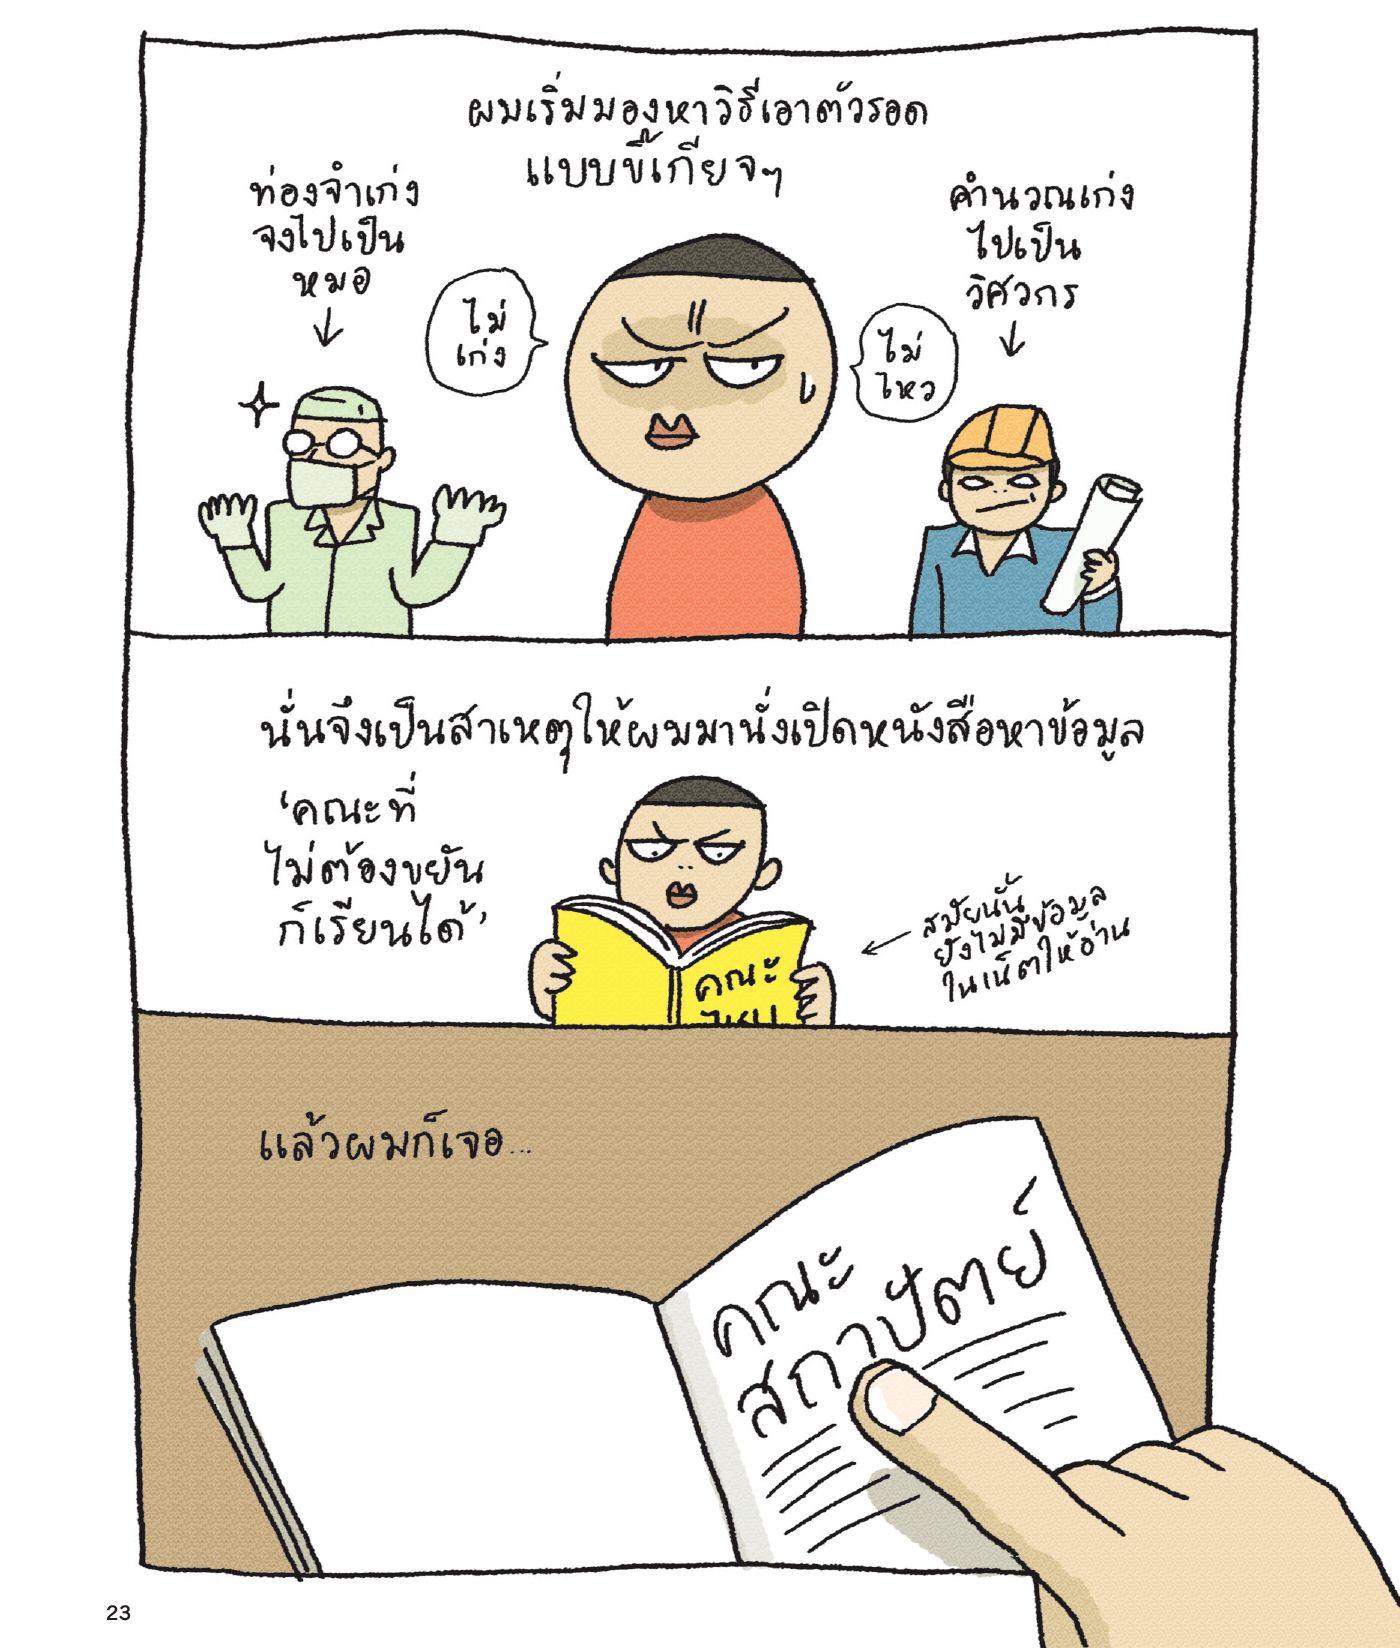 ผมเริ่มมองหาวิธีเอาตัวรอด
แบบขี้เกียจๆ
ท่องจำเก่ง
จงไปเป็น
หมอ
ไม่
เก่ง
ไม่
ไหว
คำนวณเก่ง
ไปเป็น
วิศวกร
นั่นจึงเป็นสาเหตุให้ผมมานั่งเปิดหนังสือหาข้อมูล
‘คณะที่
ไม่ต้องขยัน
ก็เรียนได้’
คณะ
ไหน
สมัยนั้น
ยังไม่มีข้อมูล
ในเน็ตให้อ่าน
แล้วผมก็เจอ...
คณะ
สถาปัตย์
23